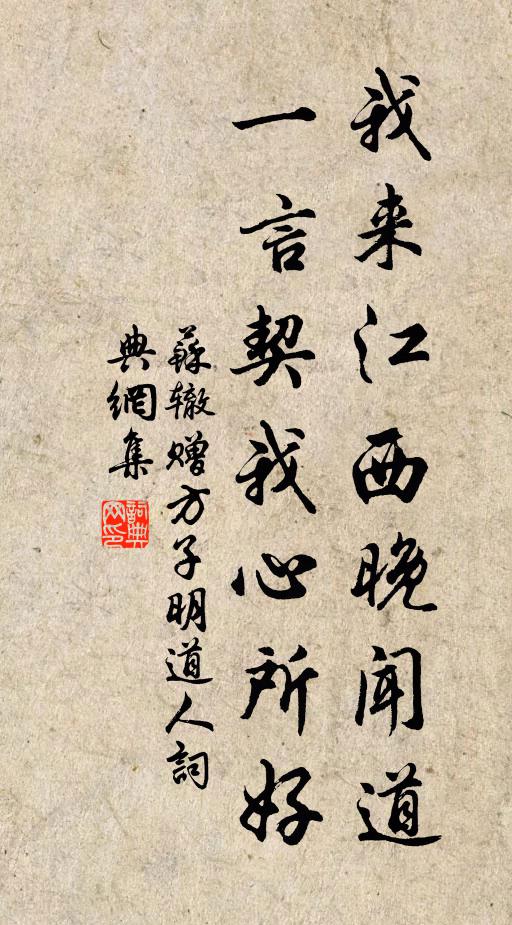 我来江西晚闻道
一言契我心所好
蘇辙赠方子明道人詞
典網集
詞典網印